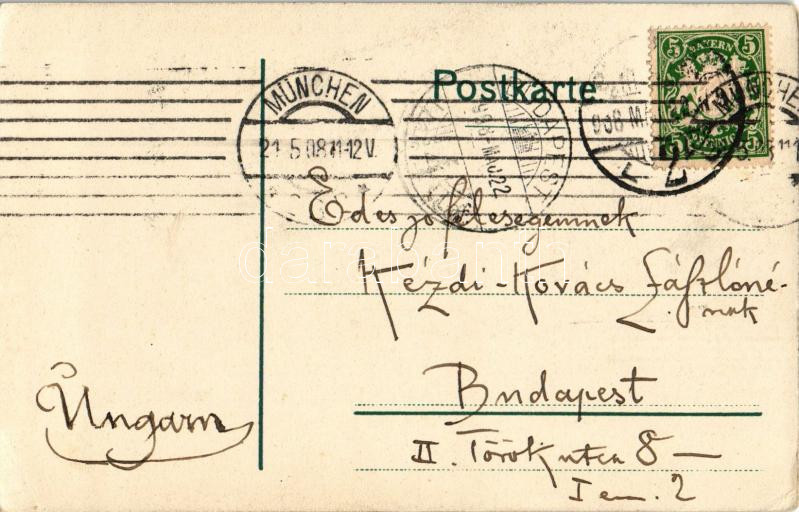 Postkarte
BAYERN
5 5
MÜNCHEN
21.5.08.11-12V.
BUDAPEST
Édes jó feleségemnek
Kézdi-Kovács Lászlóné-
nak
Budapest
II. Török utca 8 —
I em. 2
Ungarn
darabanth